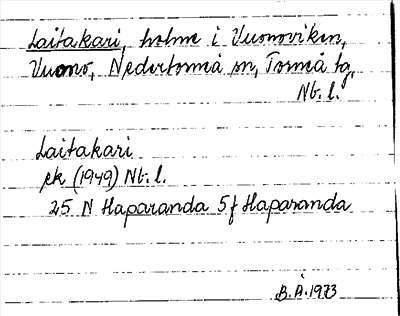 Laitakari, holme i Vuonoviken,
Vuono, Nedertorneå sn, Torneå tg,
Nb. l.
Laitakari
ek (1949) Nb. l.
25 N Haparanda 5f Haparanda
B.Å. 1973